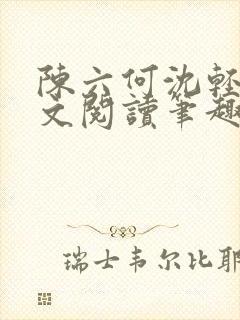 陳六何沈輕
文閱讀筆趣
瑞士韦尔比耶